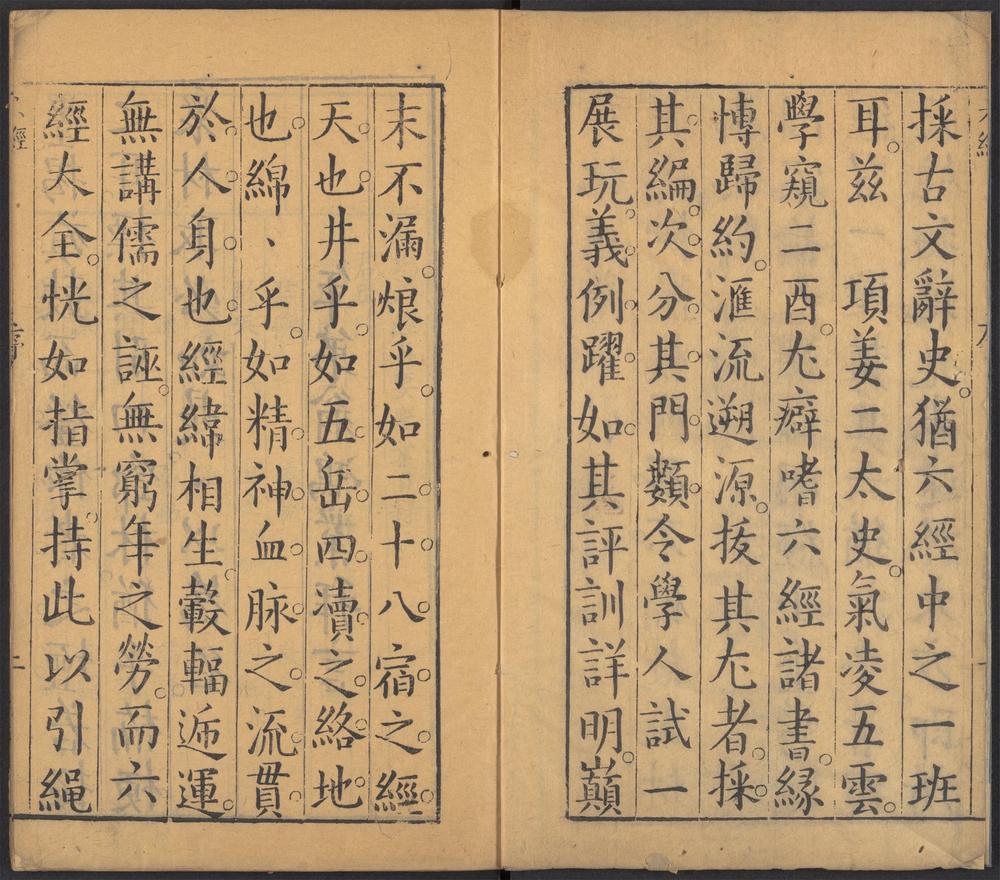 採古文辭史。猶六經中之一班
耳。茲 項姜二太史。氣凌五雲。
學窺二酉。尤癖嗜六經諸書。緣
愽歸約。滙流遡源。拔其尤者。採
其編次。分其門類。令學人試一
展玩。義例躍如。其評訓詳明。巔
末不漏。烺乎。如二十八宿之經
天也。井乎。如五岳四瀆之絡地
也。綿、乎。如精神血脉之流貫
於人身也。經緯相生。轂輻遞運。
無講儒之誣。無窮年之勞。而六
經大全。恍如指掌。持此以引繩